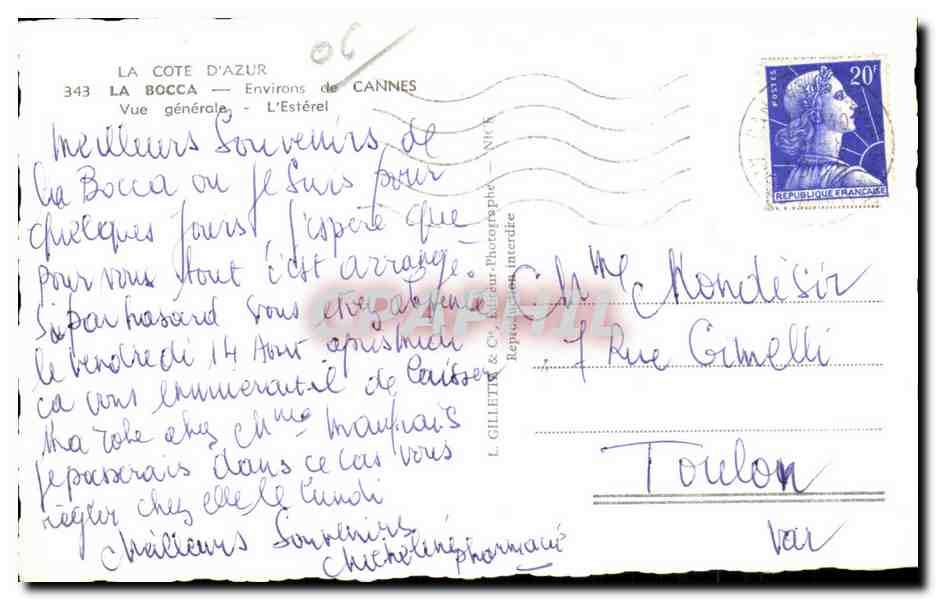 06
LA COTE D'AZUR
343 LA BOCCA — Environs de CANNES
Vue générale - L'Estérel
Meilleurs Souvenirs de
La Bocca ou je suis pour
quelques jours, j'espère que
pour vous tout c'est arrangé.
Si par hasard vous etiez absente
le vendredi 14 Aout après midi
ca vous ennuierait il de laisser
ma robe chez Mme
je passerais dans ce cas vous
régler chez elle le lundi
Meilleurs Souvenirs
Micheline pharmacie
L. GILLETTA & Cie, Editeur-Photographe - NICE
Reproduction interdite
CARPHIL
POSTES
20F
REPUBLIQUE FRANCAISE
Mme Mondésir
7 Rue Gimelli
Toulon
Var